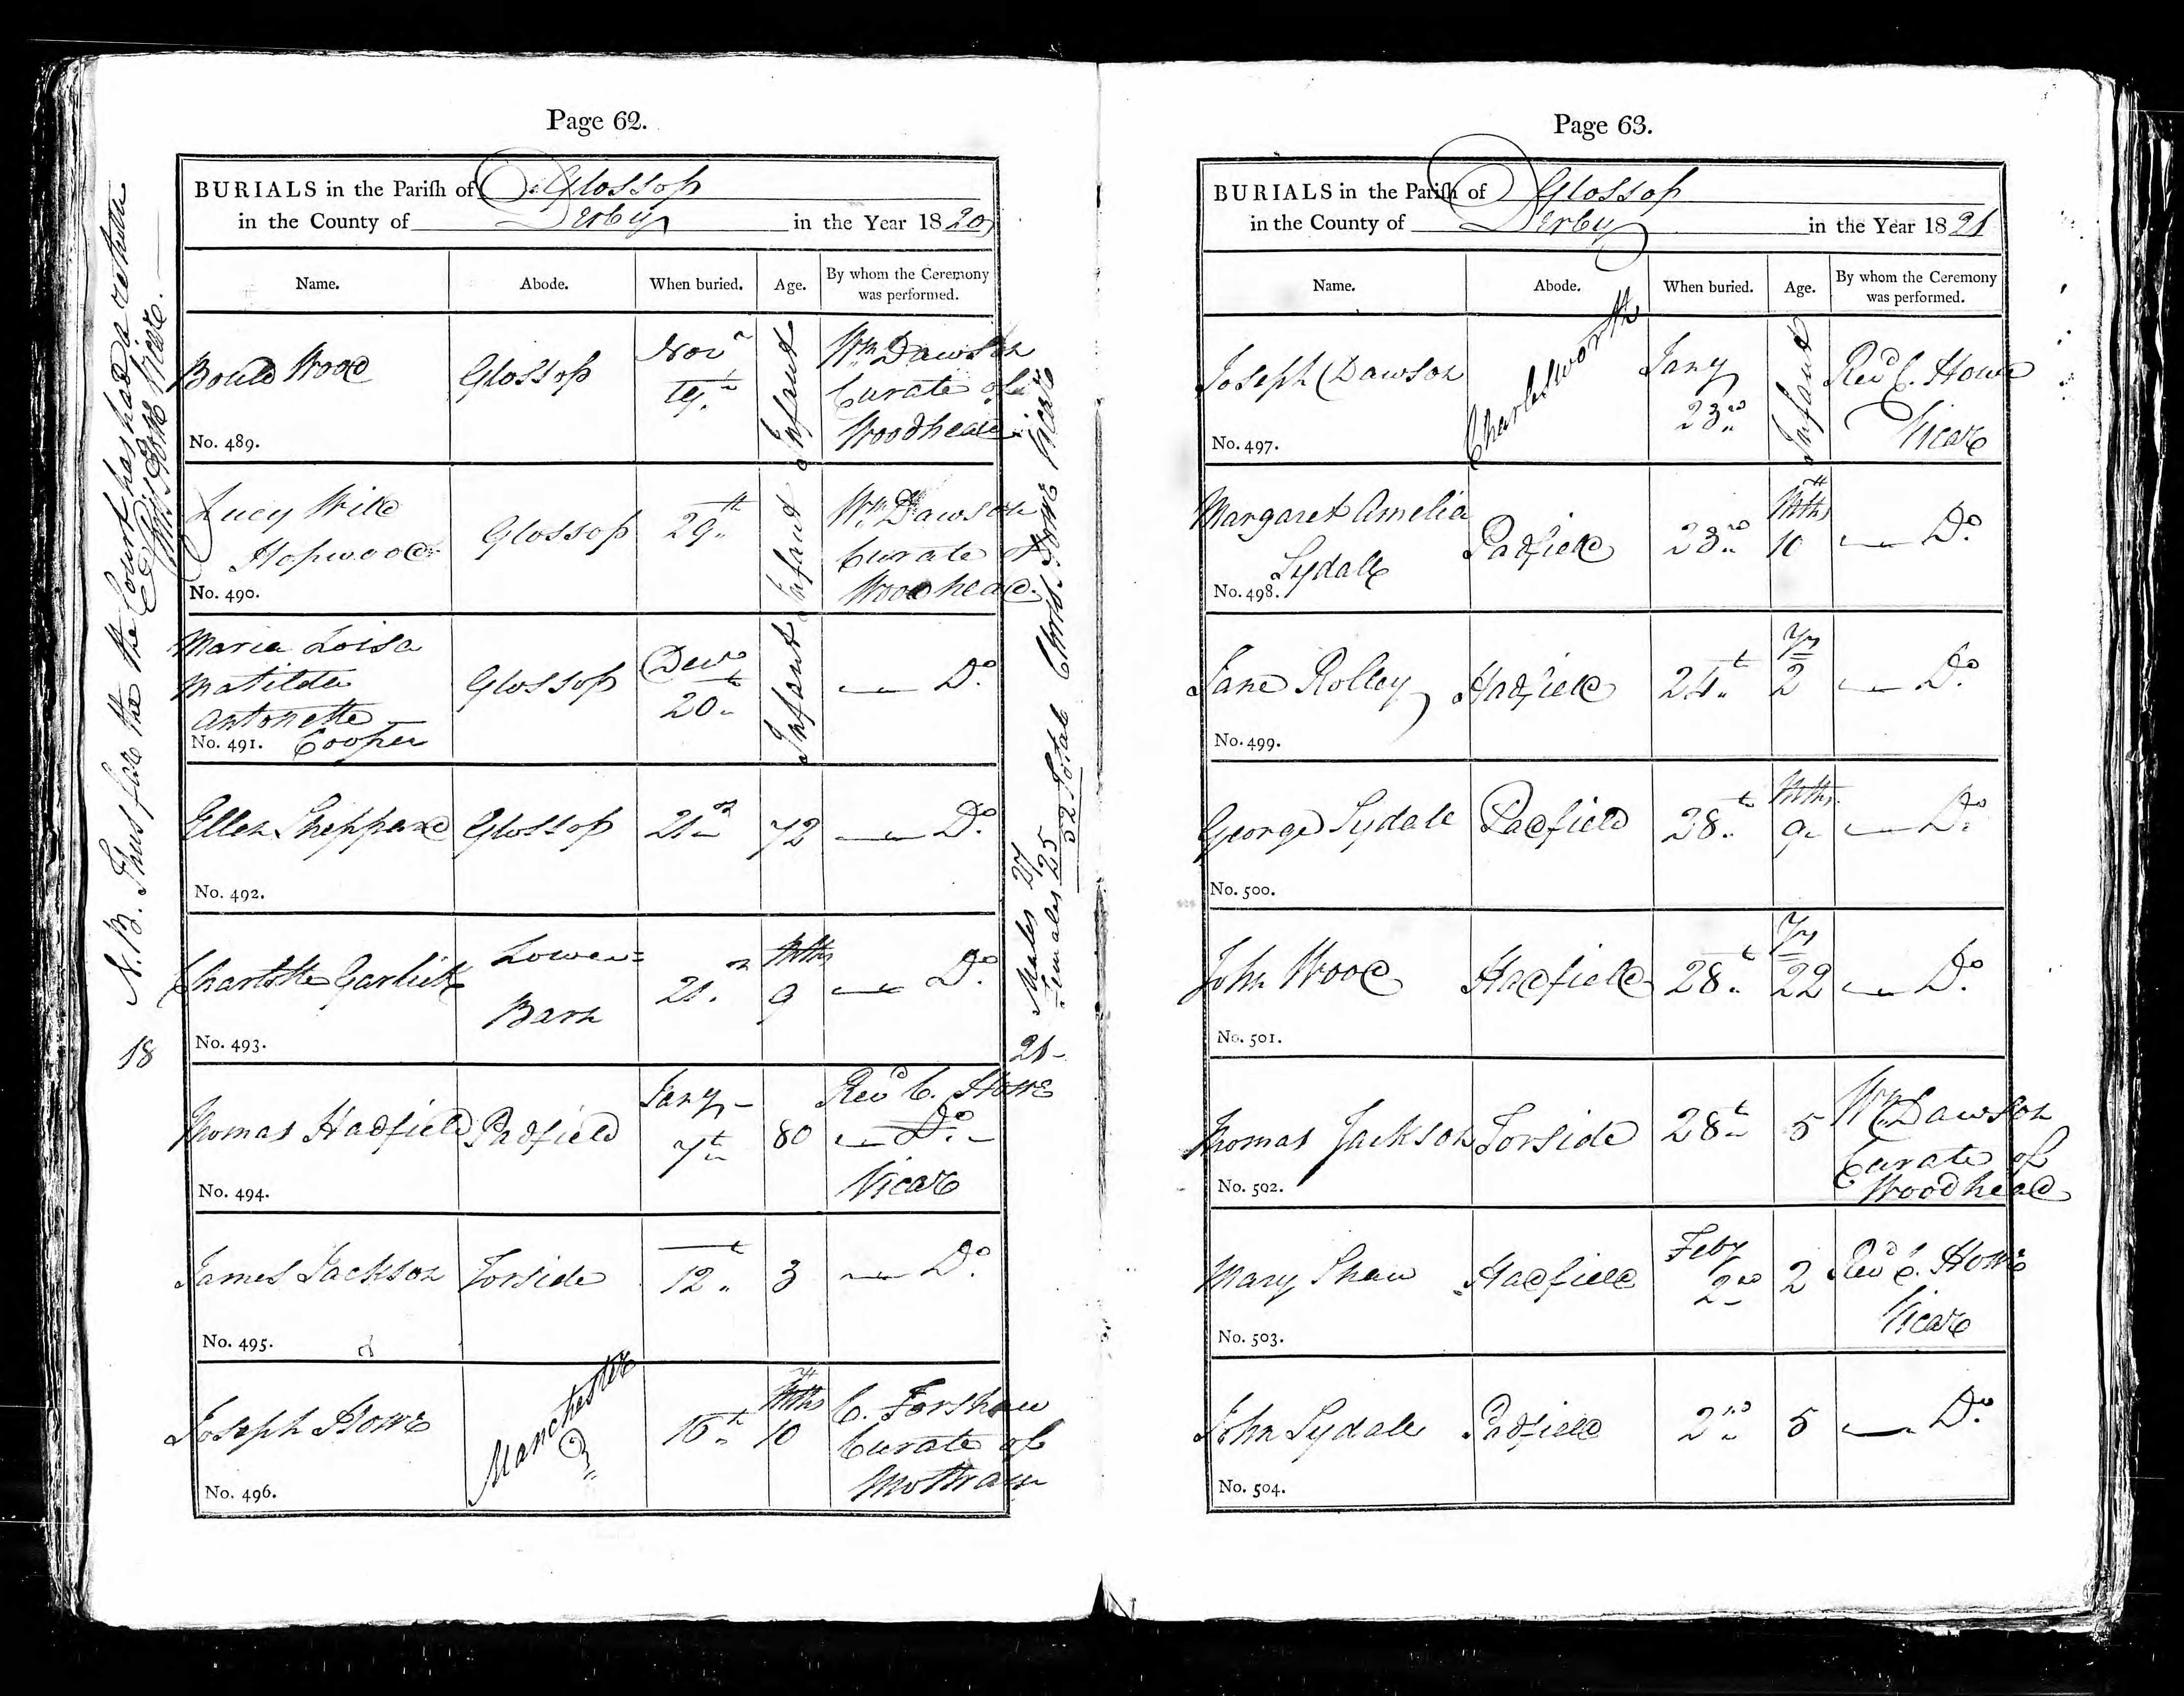 Page 62.
BURIALS in the Pariſh of Glossop
in the County of Derby in the Year 1820
Name. Abode. When buried. Age. By whom the Ceremony was performed.
Bould Wood Glossop Novr 19th Infant Wm Dawson Curate of Woodhead
No. 489.
Lucy Wild Hopwood Glossop 29th Infant Wm Dawson Curate of Woodhead.
No. 490.
Maria Loisa Matilda Antonette Cooper Glossop Decr 20th Infant Do
No. 491.
Ellen Sheppard Glossop 21st 72 Do
No. 492.
Charlotte Garlick Lower= Barn 21st Mths 9 Do
No. 493.
18 21-
Thomas Hadfield Padfield Jany 7th 80 Revd C. Howe Do Vicar
No. 494.
James Jackson Torside 12th 3 Do
No. 495.
Joseph Howe Manchester 16th Mths 10 C. Forshaw Curate of Mottram
No. 496.
N.B. Thus far the the Court has had a return
Chrisr Howe Vicar.
Males 27
Females 25
52 Total Chriss Howe Vicar
Page 63.
BURIALS in the Pariſh of Glossop
in the County of Derby in the Year 1821
Name. Abode. When buried. Age. By whom the Ceremony was performed.
Joseph Dawson Charlesworth Jany 23rd Infant Revd C. Howe Vicar
No. 497.
Margaret Amelia Lydall Padfield 23rd Mths 10 Do
No. 498.
Jane Rolley Hadfield 24th Yrs 2 Do
No. 499.
George Lydall Padfield 28th Mths 9 Do
No. 500.
John Wood Hadfield 28th Yrs 22 Do
No. 501.
Thomas Jackson Torside 28th 5 Wm Dawson Curate of Woodhead
No. 502.
Mary Shaw Hadfield Feby 2nd 2 Revd C. Howe Vicar
No. 503.
John Lydall Padfield 2nd 5 Do
No. 504.